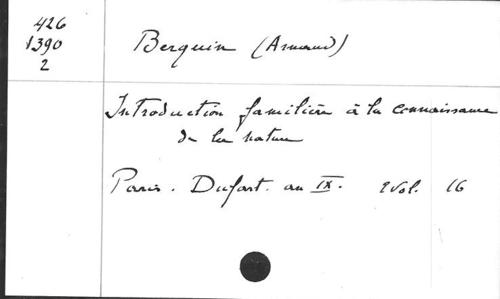 426
1390
2
Berquin (Arnaud)
Introduction familière à la connaissance
de la nature
Paris. Dufart. an IX. 2 vol. 16